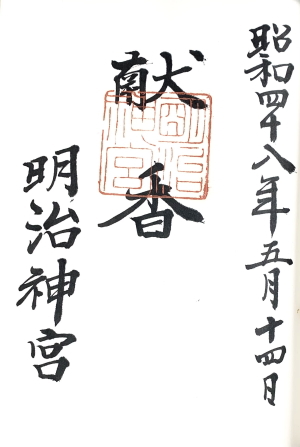 昭和四十八年五月十四日
献香
明治神宮
明治神宮